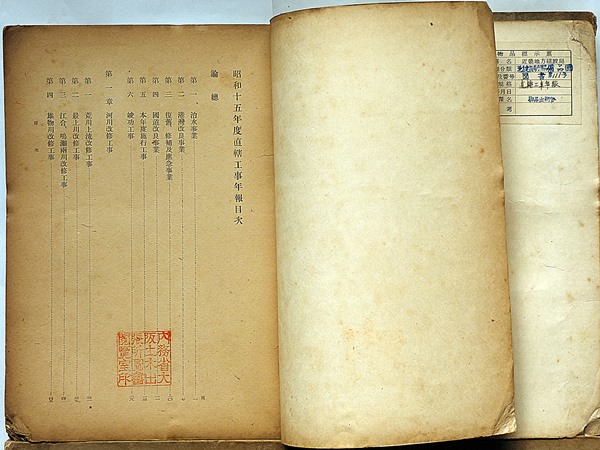 昭和十五年度直轄工事年報目次
總論
第一 治水事業
第二 港灣改良事業
第三 復舊、修補及應急事業
第四 國道改良事業
第五 本年度施行工事
第六 竣功工事
第一章 河川改修工事
第一 荒川上流改修工事
第二 最上川改修工事
第三 江合、鳴瀬兩川改修工事
第四 雄物川改修工事
目次
內務省大
阪土木出
張所圖書
閲覽室所
物品標示票
近畿地方建設局
圖書